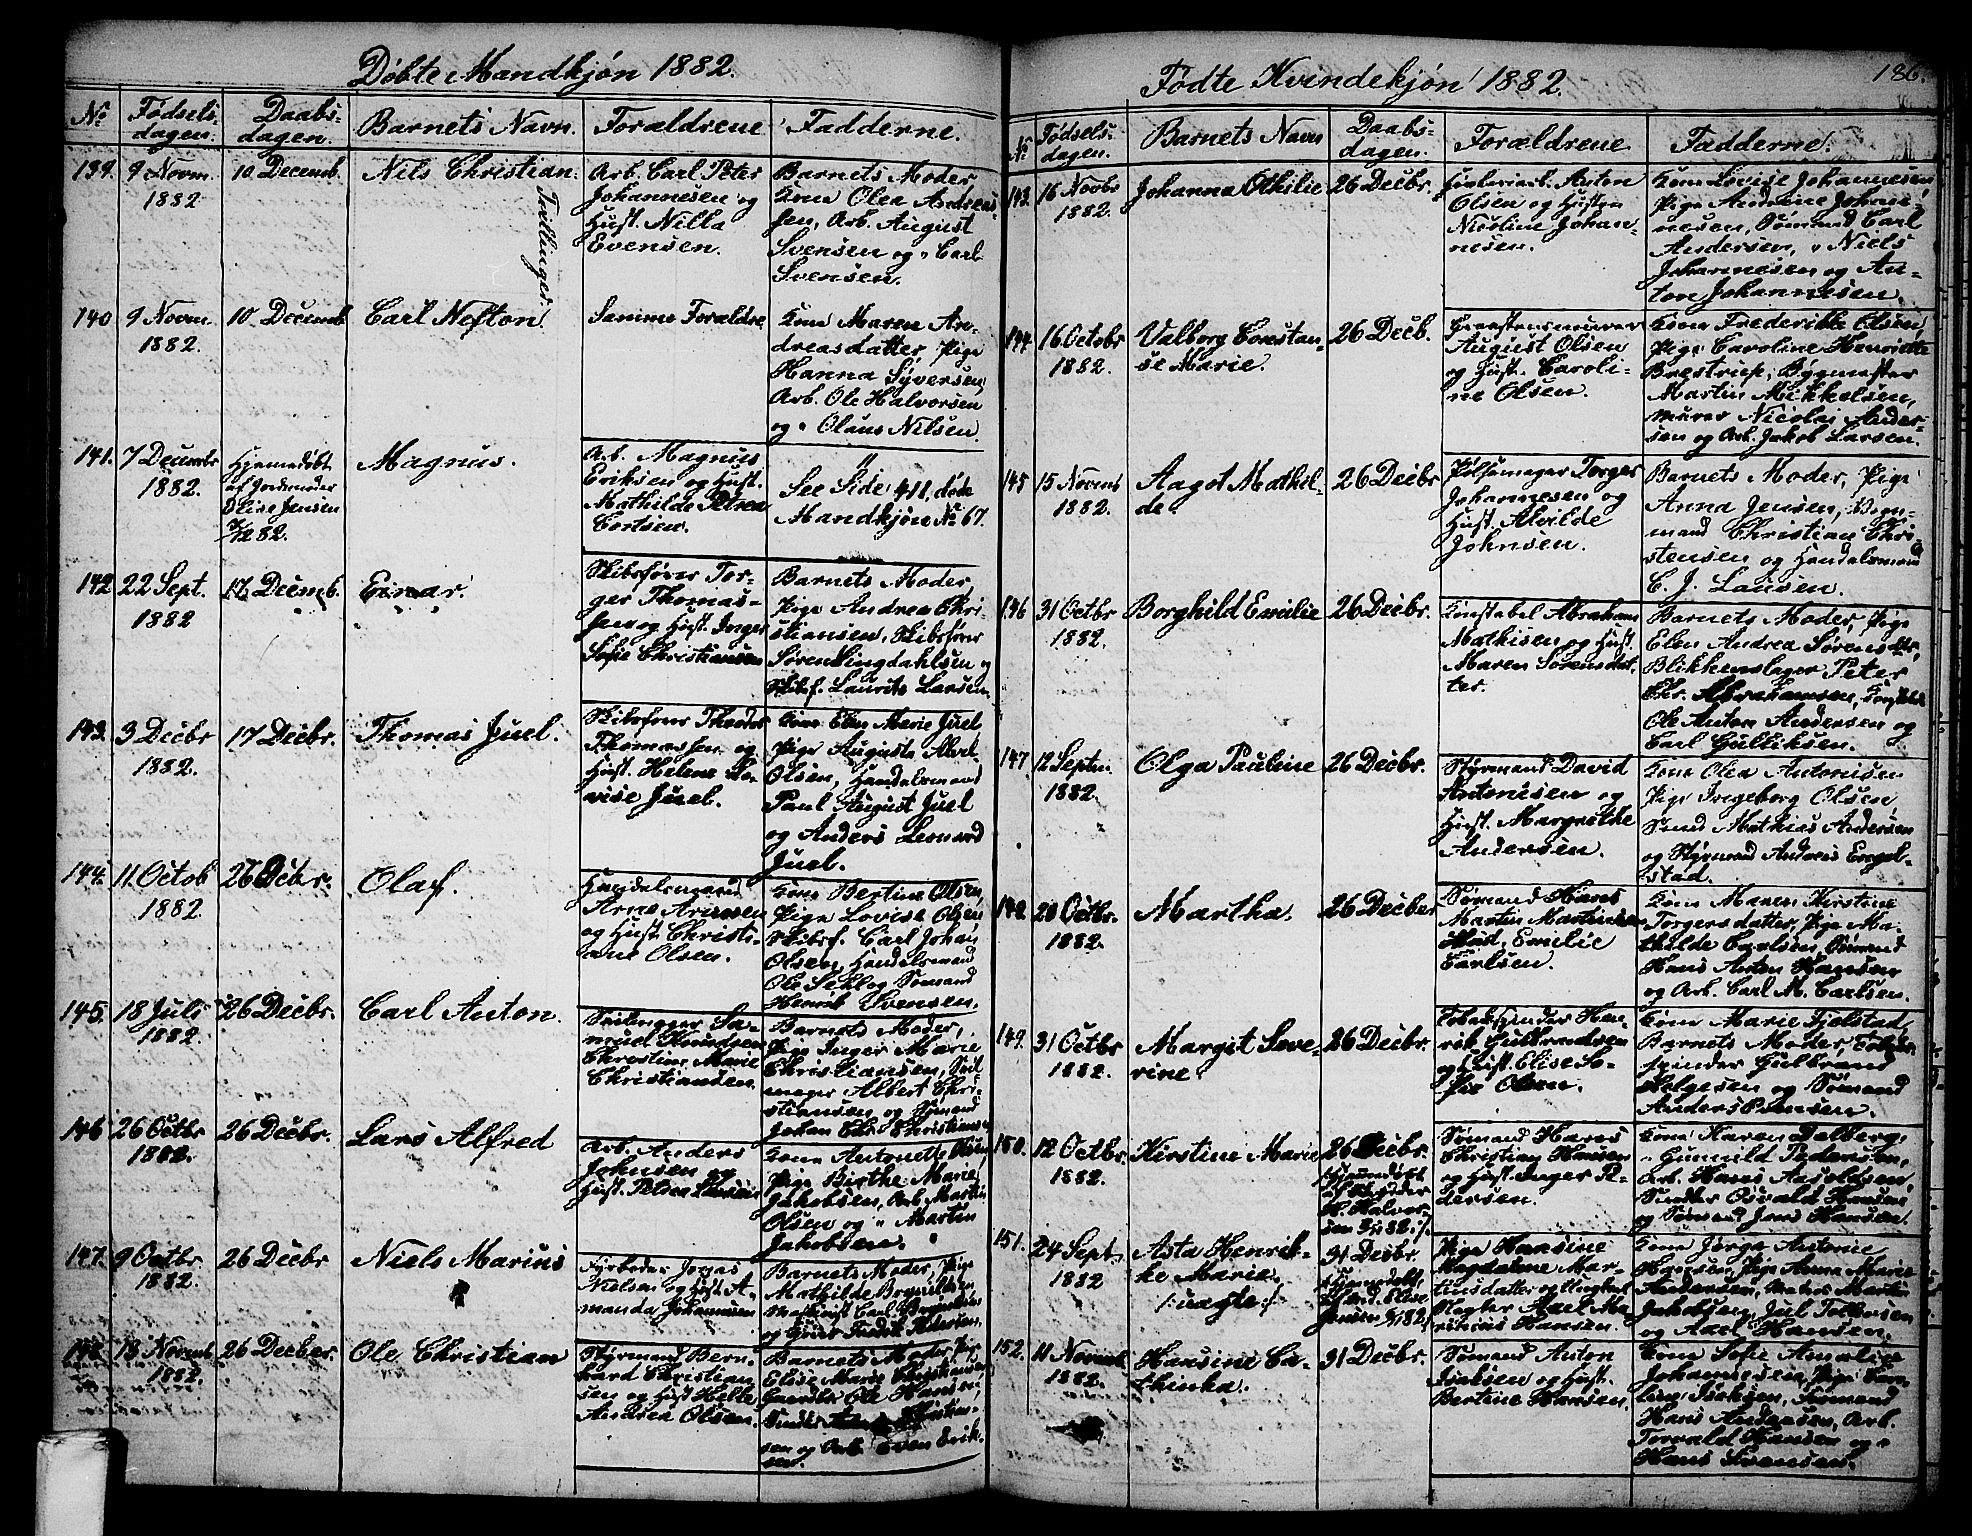 Døbte Mandkjøn 1882.
No Fødsels- dagen. Daabs- dagen. Barnets Navn. Forældrene Fadderne.
139. 9 Novm. 1882 10 Decemb. Nils Christian. Tvillinger.
Arb. Carl Peter
Johannesen og
Hust. Nilla
Evensen.
Barnets Moder,
Kone Olea Andreas-
sen, Arb. August
Svensen og " Carl
Svensen.
140 9 Novm. 1882. 10 Decemb. Carl Nefton.
Samme Forældre
Kone Maren An-
dreasdatter, Pige
Hanna Syversen,
Arb. Ole Halvorsen
og " Olaus Nilsen.
141. 7 Decembr 1882.
Hjemmedøbt
af Jordmoder
Elise Jensen
Magnus.
Arb. Magnus
Eriksen og Hust.
Mathilde Petrea
Cortsen.
"
See Side 411, døde
Mandkjøn No 67.
142 22 Sept. 1882 17 Decemb. Einar.
Skibsfører Tor-
ger Thomas-
sen og Hust. Inger
Sofie Christiansen
Barnets Moder,
Pige Andrea Chri-
stiansen, Skibsfører
Søren Lingdahlsen og
Skibsf. Laurits Larsen.
143. 3 Decbr 1882. 17 Decbr. Thomas Juel.
Skibsfører Theodor
Thomassen og
Hust. Helene Lo-
vise Juel.
Kone Elen Marie Juel
Pige Augusta Alvil.
Olsen, Handelsmænd
Paul August Juel
og Anders Leonard
Juel.
144. 11 Octob 1882. 26 Dcbr. Olaf.
Handelsmand
Arne Arnesen
og Hust. Christi-
ane Olsen.
Kone Bertine Olsen,
Pige Lovise Olsen
Skibsf. Carl Johan
Olsen, Handelsmand
Ole Sekl og Sømand
Henrik Svensen.
145. 18 Juli 1882. 26 Decbr. Carl Anton.
Seilmager Sa-
muel Knudsen
Christine Marie
Christiansen.
Barnets Moder,
Pige Inger Marie
Christiansen, Seil-
mager Albert Chri-
stiansen og Sømand
Johan Chr. Christiansen
146 26 Octbr 1882. 26 Decbr. Lars Alfred
Arb. Anders
Johnsen og
Hust. Petrea Larsen
Kone Antonette Olsen,
Pige Birthe Marie
Jakobsen, Arb. Martin
Olsen og " Martin
Jakobsen.
147. 9 Octbr 1882. 26 Decbr Niels Marius
Fyrbøder Jonas
Nielsen og Hust. A-
manda Johannesen
Barnets Moder, Pige
Mathilde Brynildsen
Maskinist Carl Brynildsen
og Fredrik Pedersen.
148. 18 Novmb 1882. 26 Decber. Ole Christian
Styrmand Bern-
hard Christian-
sen og Hust. Helle
Andrea Olsen.
Barnets Moder, Pig
Elise Marie Christiansen,
Ole Hansen
Christian-
sen og Arb. Even Erik-
sen.
Fødte Kvindekjøn 1882.
186.
No Fødsels- dagen. Barnets Navn Daabs- dagen. Forældrene Fadderne.
143. 16 Novbr 1882. Johanna Othilie 26 Decbr.
Anton
Olsen og Hustru
Nicoline Johan-
nesen.
Kone Lovise Johannesen,
Pige Andrine Johan-
nesen, Sømænd Carl
Andersen, " Niels
Johannesen og An-
ton Johannesen.
144. 16 Octobr 1882. Valborg Constan-
se Marie. 26 Decb.
Graastensmurer
August Olsen
og Hust. Caroli-
ne Olsen.
Kone Frederikke Olsen,
Pige Caroline Henriette
Brestrup, Bygmester
Martin Mikkelsen,
murer Nicolai Ander-
sen og Arb. Jakob Larsen.
145 15 Novmb 1882. Aagot Mathil-
de. 26 Decbr
Pølsemager Torger
Johannesen og
Hust. Alvilde
Johnsen.
Barnets Moder, Pige
Anna Jensen,
mand Christian Chri-
stensen og Handelsmand
C. J. Lausen.
146 31 Octbr 1882. Borghild Emilie 26 Decbr.
Konstabel Abraham
Mathisen og Hust.
Maren Sørensdat-
ter.
Barnets Moder, Pige
Elen Andrea Sørensdtr.,
Blikkenslager Peter
Chr. Abrahamsen,
Ole Anton Andersen og
Carl Gulliksen.
147 12 Septm. 1882. Olga Pauline 26 Decbr.
Styrmand David
Antonisen og
Hust. Margrethe
Andersen.
Kone Olea Antonisen
Pige Ingeborg Olsen
Smed Mathias Andersen
og Styrmand Andreas Engel-
stad.
148. 20 Octbr. 1882. Martha. 26 Decber
Sømand Hans
Martin Martinsen
Hust. Emelie
Carlsen.
Kone Maren Kirstine
Torgersdatter, Pige Ma-
thilde Carlsen, Sømand
Hans Anton Hansen
og Arb. Carl M. Carlsen.
149. 31 Octbr 1882. Margit Seve-
rine. 26 Decbr.
Tobaksspinder Hen-
rik Gulbrandsen
og Hust. Elise So-
fie Olsen.
Kone Marie Fjelstad,
Barnets Moder, Tobaks-
spinder Gulbrand
Helgesen og Sømand
Anders Evensen.
150. 12 Octbr. 1882. Kirstine Marie 26 Decbr.
Hjemmedøbt
af Jordmoder
H. Halvor-
sen
Sømand Hans
Christian Hansen
og Hust. Inger Pe-
dersen.
Kone Karen Dalberg,
" Gunnild Pedersen,
Arb. Hans Aasoldsen,
Osvald Hansen
og Sømand Jens Hansen.
151. 24 Sept. 1882 Asta Henrik-
ke Marie.
/: uægte :/
31 Decbr.
Hjemmedøbt,
af Jordmd. Elise
Jensen
Pige Hansine
Magdalene Mar-
tinsdatter og Ungkarl
Slagter Axel Ma-
rinius Hansen.
Kone Jørga Antonie
Hansen, Pige Anna Marie
Andersen, Martin
Jakobsen, Jul Tollefsen
og Axel Hansen.
152. 11 Novmb. 1882. Hansine Ca-
thinka. 31 Decbr.
Sømand Anton
Isaksen og Hust.
Bertine Hansen.
Kone Sofie Amalie
Johannesen, Pige Karo-
line Isaksen, Sømand
Hans Andersen, Arb.
Torvald Hansen og "
Hans Svensen.